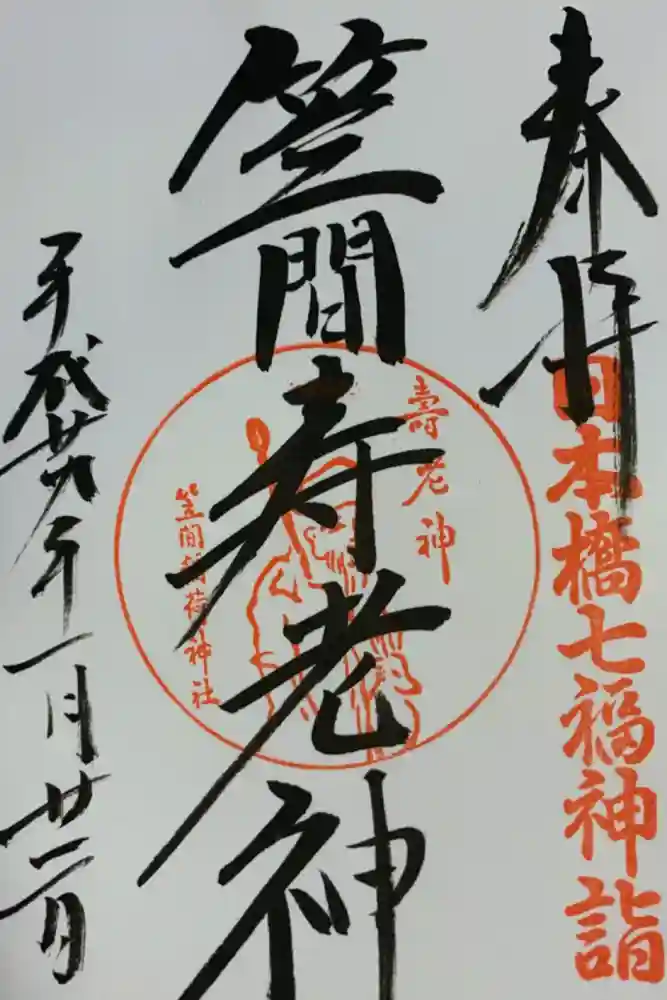 奉拝
日本橋七福神詣
笠間寿老神
壽老神
笠間稲荷神社
平成廿九年一月廿二日